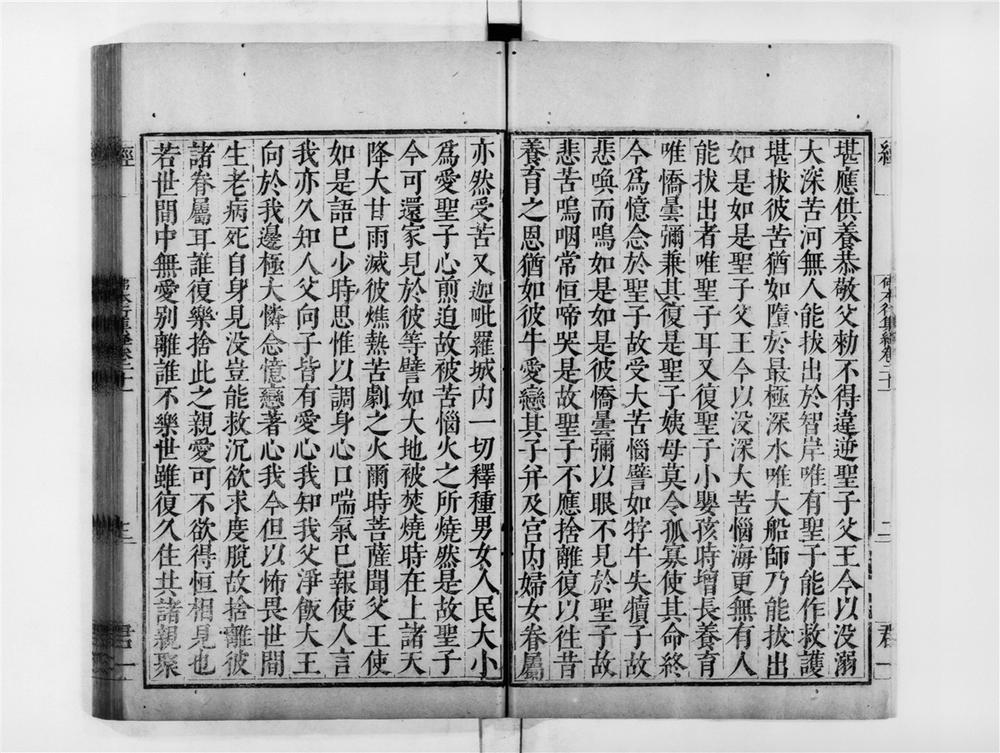 堪應供養恭敬父勅不得違逆聖子父王今以没溺
大深苦河無人能拔出於智岸唯有聖子能作救護
堪拔彼苦猶如墮於最極深水唯大船師乃能拔出
如是如是聖子父王今以没深大苦惱海更無有人
能拔出者唯聖子耳又復聖子小嬰孩時增長養育
唯憍曇彌兼其復是聖子姨母莫令孤寡使其命終
今為憶念於聖子故受大苦惱譬如牸牛失犢子故
悲喚而鳴如是如是彼憍曇彌以眼不見於聖子故
悲苦嗚咽常恒啼哭是故聖子不應捨離復以往昔
養育之恩猶如彼牛愛戀其子并及宮内婦女眷屬
亦然受苦又迦毗羅城内一切釋種男女人民大小
爲愛聖子心煎迫故被苦惱火之所燒然是故聖子
今可還家見於彼等譬如大地被焚燒時在上諸天
降大甘雨滅彼燋熱苦劇之火爾時菩薩聞父王使
如是語已少時思惟以調身心口喘氣已報使人言
我亦久知人父向子皆有愛心我知我父淨飯大王
向於我邊極大憐念憶戀著心我今但以怖畏世間
生老病死自身見没豈能救沉欲求度脫故捨離彼
諸眷屬耳誰復樂捨此之親愛可不欲得恒相見也
若世間中無愛别離誰不樂世雖復久住共諸親聚
經
佛本行集經卷二十一
三
君一